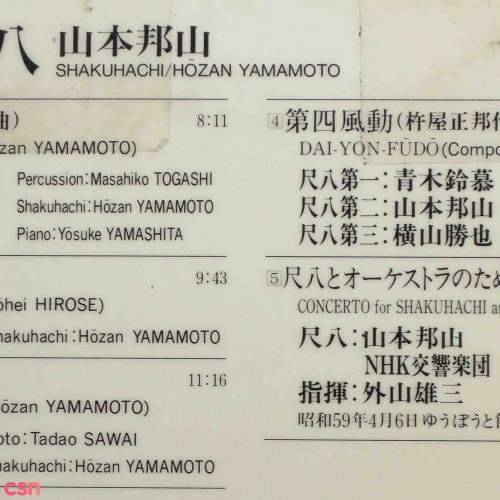 八 山本邦山
SHAKUHACHI/HŌZAN YAMAMOTO
曲) 8:11
zan YAMAMOTO)
Percussion:Masahiko TOGASHI
Shakuhachi:Hōzan YAMAMOTO
Piano:Yōsuke YAMASHITA
9:43
ōhei HIROSE)
hakuhachi:Hōzan YAMAMOTO
11:16
Hōzan YAMAMOTO)
oto:Tadao SAWAI
hakuhachi:Hōzan YAMAMOTO
4 第四風動(杵屋正邦作
DAI-YON-FŪDŌ(Compo
尺八第一:青木鈴慕
尺八第二:山本邦山
尺八第三:横山勝也
5 尺八とオーケストラのため
CONCERTO for SHAKUHACHI an
尺八:山本邦山
NHK交響楽団
指揮:外山雄三
昭和59年4月6日ゆうぽうと
csn